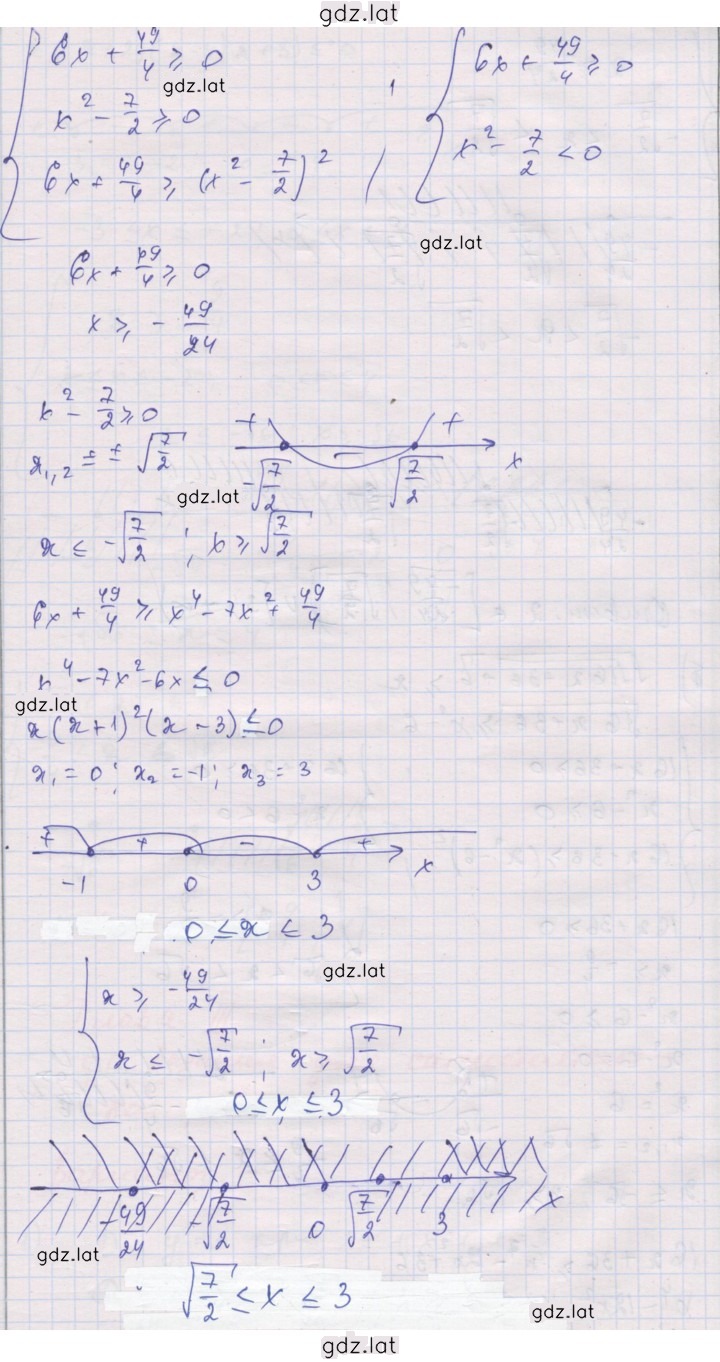 gdz.lat
6x + 49/4 ≥ 0
6x + 49/4 ≥ 0
gdz.lat
x² - 7/2 ≥ 0
x² - 7/2 < 0
6x + 49/4 ≥ (x² - 7/2)²
gdz.lat
6x + 49/4 ≥ 0
x ≥ - 49/24
x² - 7/2 ≥ 0
+ - + x
x₁,₂ = ± √(7/2)
-√(7/2) √(7/2)
gdz.lat
x ≤ -√(7/2) ; x ≥ √(7/2)
6x + 49/4 ≥ x⁴ - 7x² + 49/4
x⁴ - 7x² - 6x ≤ 0
gdz.lat
x(x+1)²(x - 3) ≤ 0
x₁ = 0; x₂ = -1; x₃ = 3
+ + - + x
-1 0 3
0 ≤ x ≤ 3
gdz.lat
x ≥ -49/24
x ≤ -√(7/2) ; x ≥ √(7/2)
0 ≤ x ≤ 3
-49/24 -√(7/2) 0 √(7/2) 3 x
gdz.lat
√(7/2) ≤ x ≤ 3
gdz.lat
gdz.lat